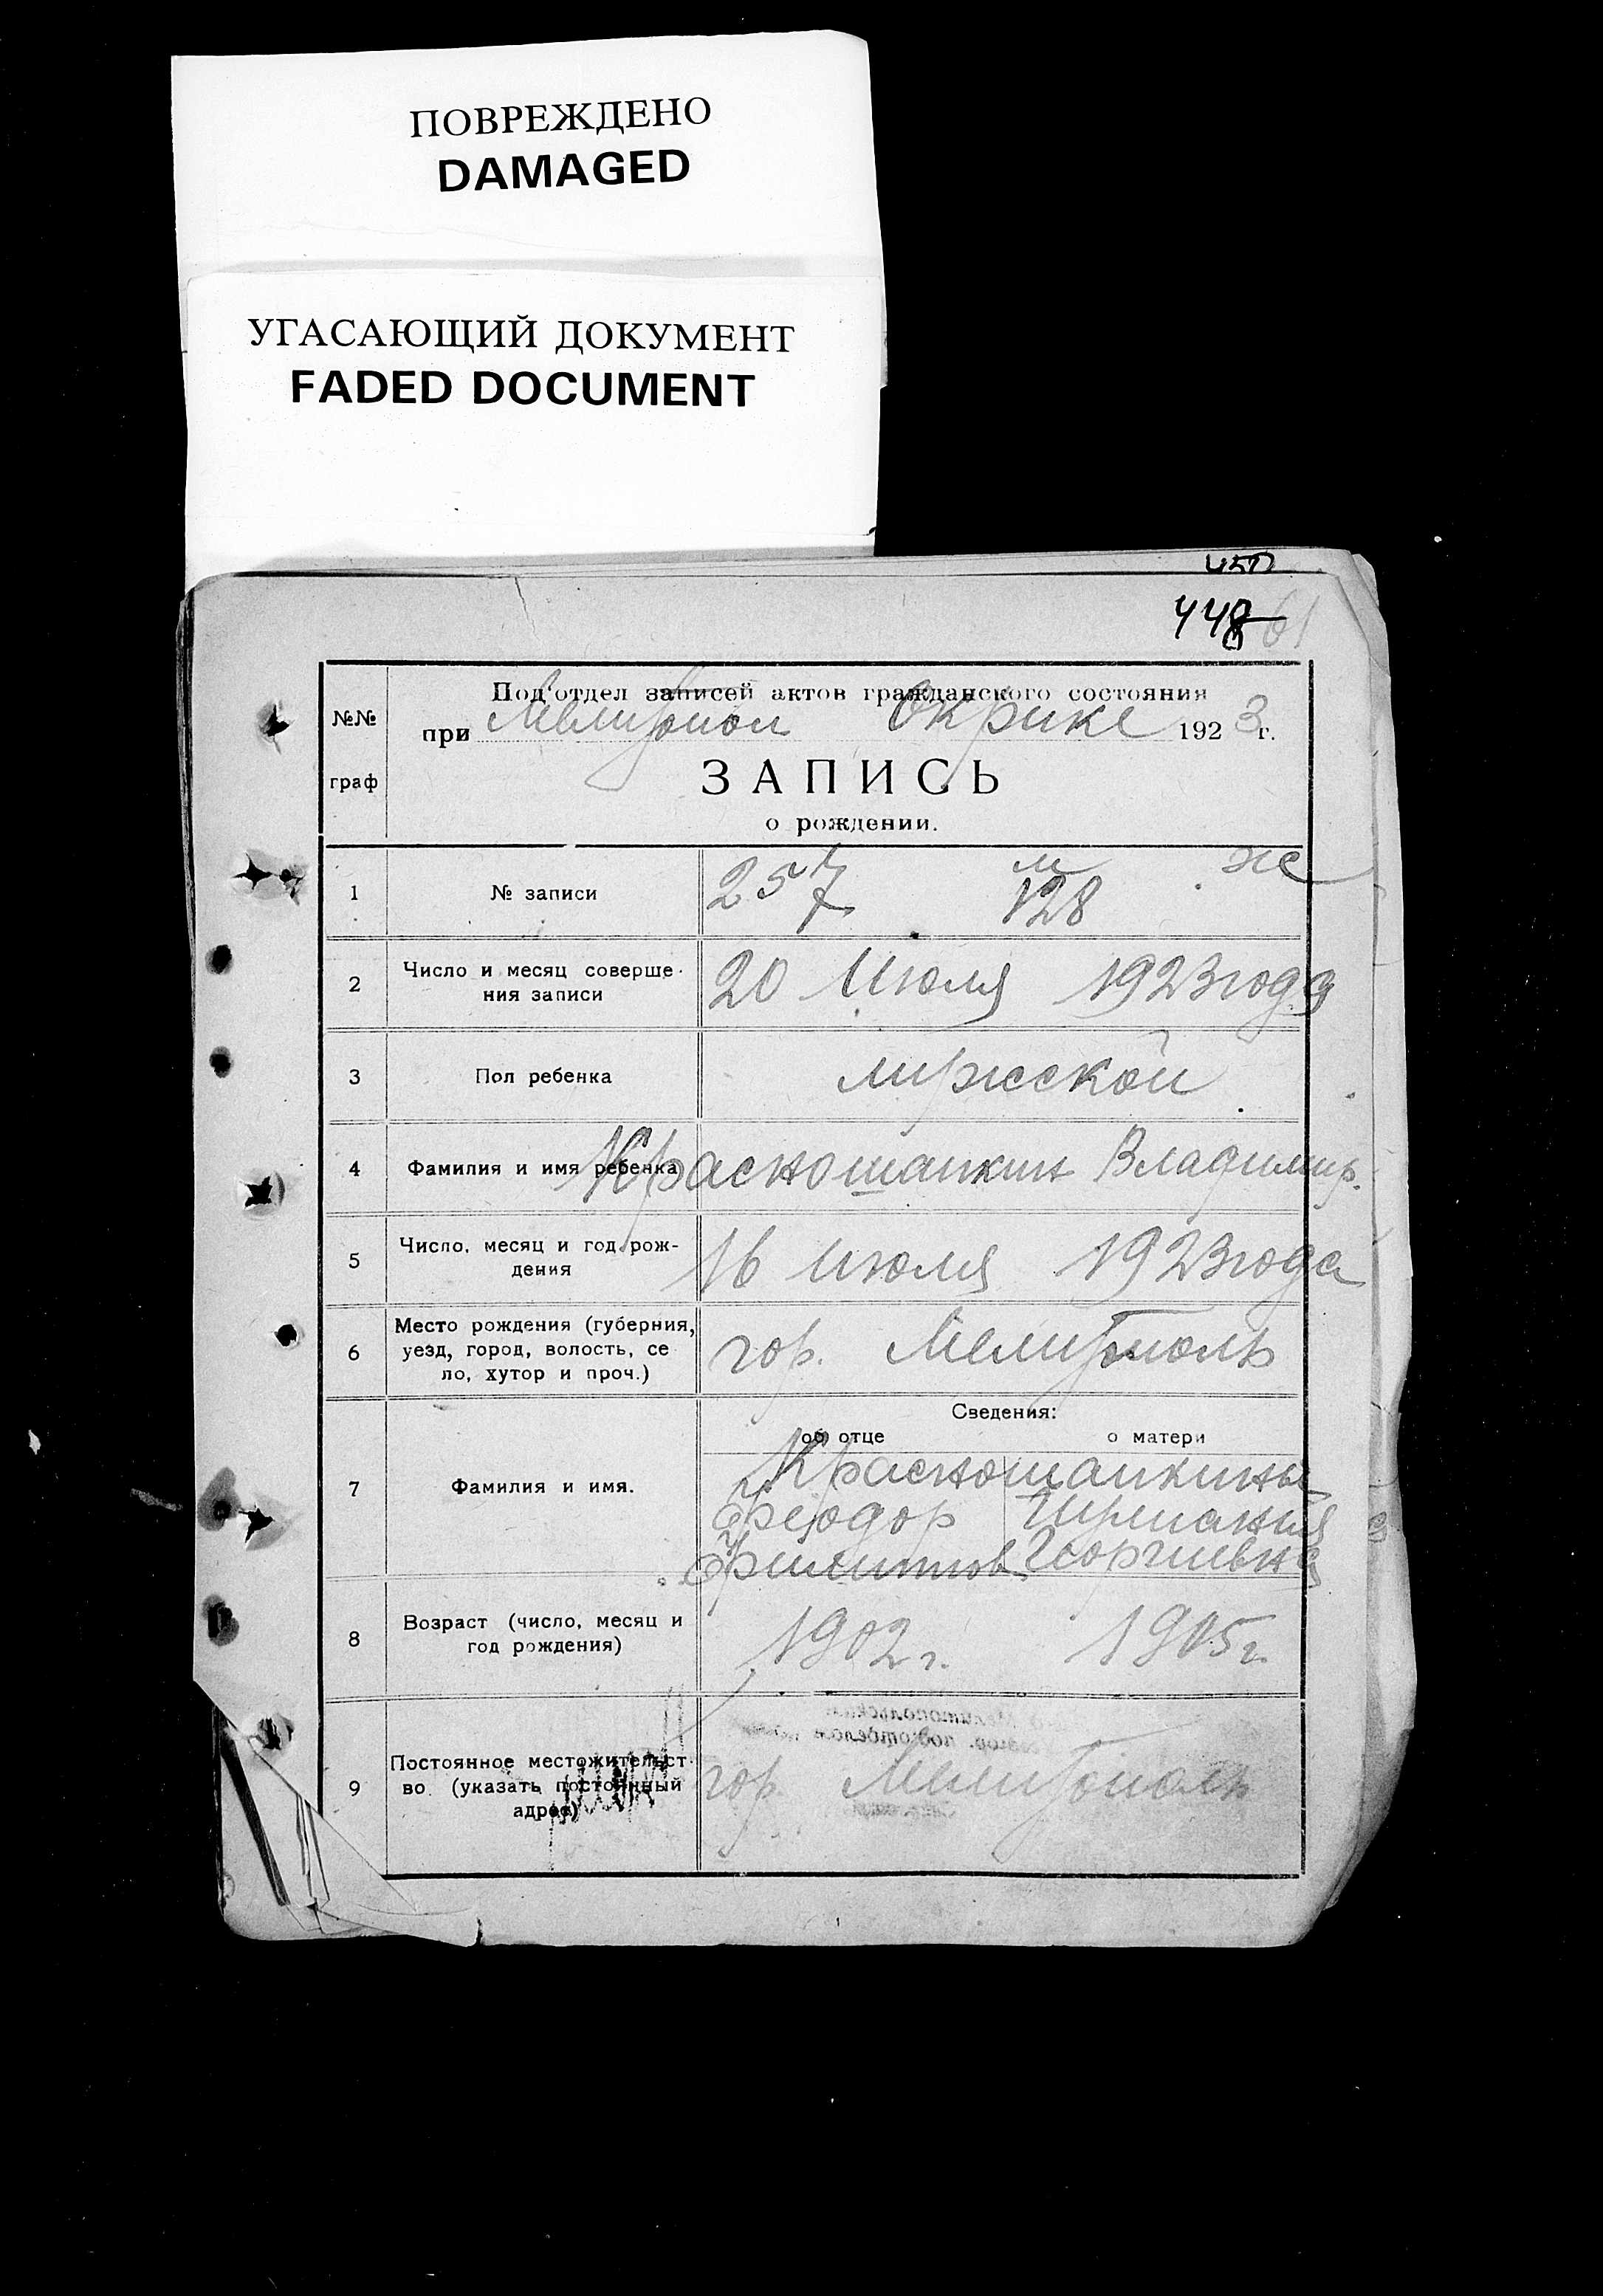 ПОВРЕЖДЕНО
DAMAGED
УГАСАЮЩИЙ ДОКУМЕНТ
FADED DOCUMENT
450
448 61
№№ граф
Под'отдел записей актов гражданского состояния
при Мелитопол Окрике 1923 г.
ЗАПИСЬ
о рождении.
м ж
1 № записи 257 128
2 Число и месяц соверше-
ния записи 20 Июля 1923 года
3 Пол ребенка мужской
4 Фамилия и имя ребенка Красношапкин Владимир.
5 Число, месяц и год рож-
дения 16 июля 1923 года
6 Место рождения (губерния,
уезд, город, волость, се
ло, хутор и проч.) гор. Мелитополь
Сведения:
об отце о матери
7 Фамилия и имя. Красношапкины
Феодор
Филиппов. Георгиевна
8 Возраст (число, месяц и
год рождения) 1902 г. 1905 г.
9 Постоянное местожительст-
во (указать постоянный
адрес) гор. Мелитополь